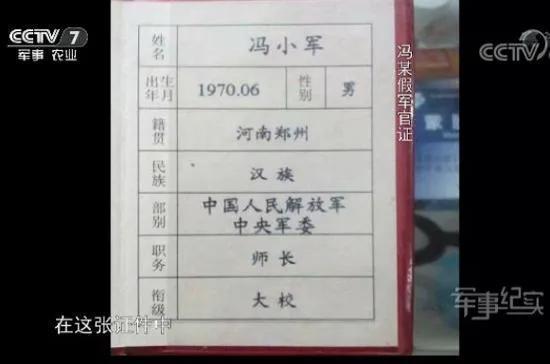 CCTV 7
军事 农业
姓名
冯小军
出生年月
1970.06
性别
男
籍贯
河南郑州
民族
汉族
部别
中国人民解放军
中央军委
职务
师长
衔级
大校
冯某假军官证
在这张证件中
军事纪实